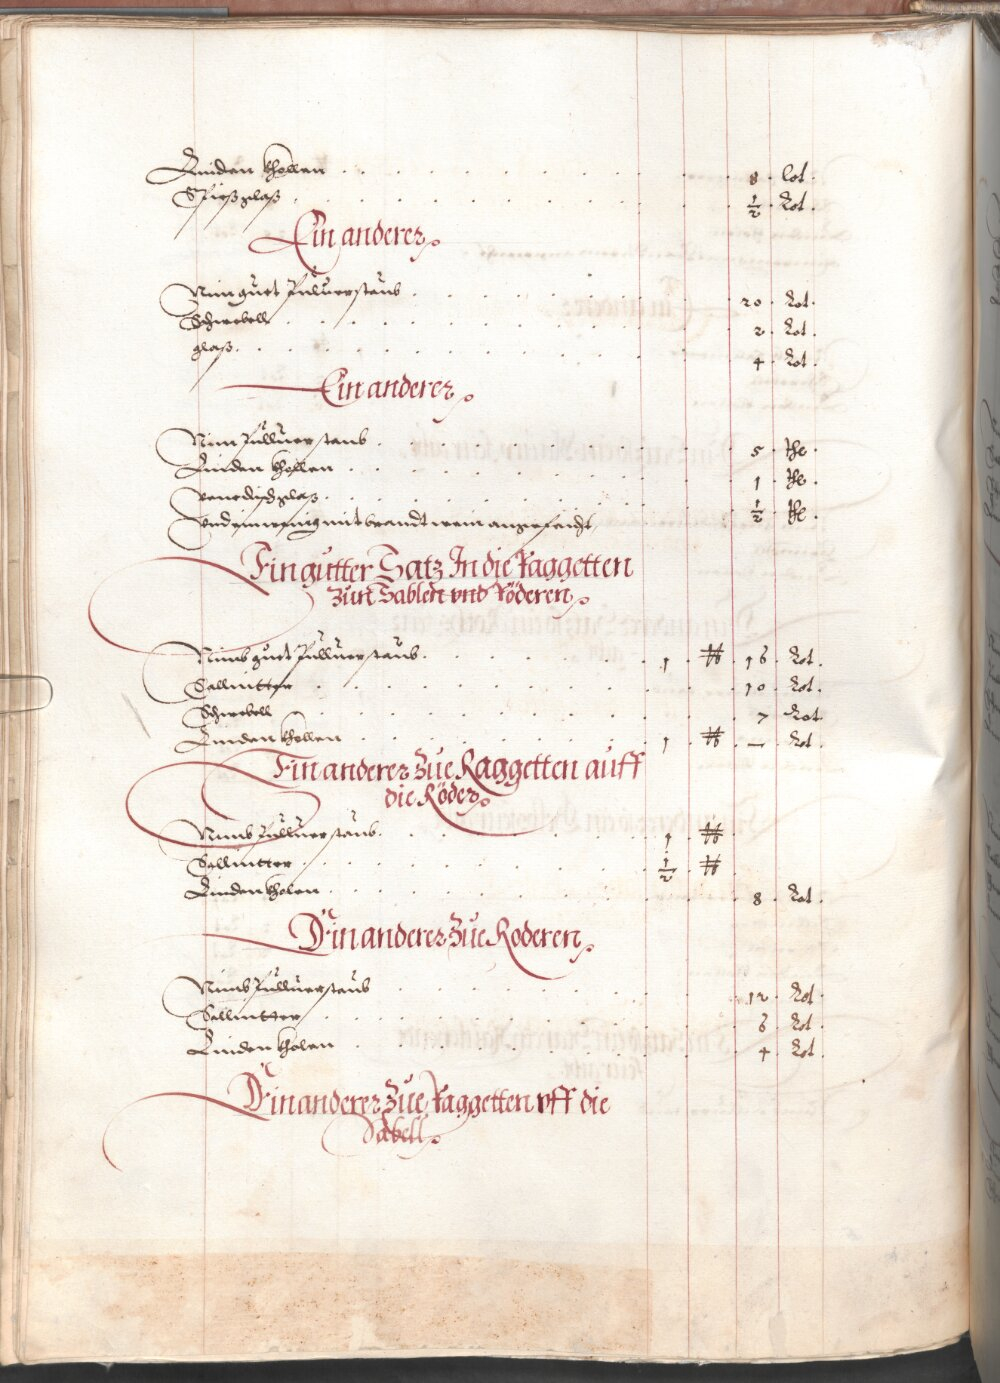 Linden Khollen . . . . . . . 8 . Lot .
Spießglaß . . . . . . . ½ . Lot .
Ein anderer
Nim guet Pulluerstaub . . . . . . 20 . Lot .
Schwebell . . . . . . . 2 . Lot .
glaß . . . . . . . 4 . Lot .
Ein anderer
Nim Pulluerstaub . . . . . . 5 . the .
Linden Khollen . . . . . . 1 . the .
Venedisch glaß . . . . . . ½ . the .
Vnd ein wenig mit brandt wein angefeicht
Ein gutter Satz In die Raggetten
Zun Sablen vnd Röderen
Nimb guet Pulluerstaub . . . . . 1 ℔ . 16 . Lot .
Sallnitter . . . . . . . 10 . Lot .
Schwebell . . . . . . . 7 . Lot
Linden Khollen . . . . . . 1 ℔ . — . Lot .
Ein anderer Zue Raggetten auff
die Röder
Nimb Pulluerstaub . . . . . . 1 . ℔
Sallnitter . . . . . . . ½ . ℔
Linden Kholen . . . . . . . 8 . Lot .
Ein anderer Zue Roderen
Nimb Pulluerstaub . . . . . . 12 . Lot .
Sallnitter . . . . . . . 6 . Lot .
Linden Kholen . . . . . . . 4 . Lot .
Ein anderer Zue Raggetten vff die
Säbell